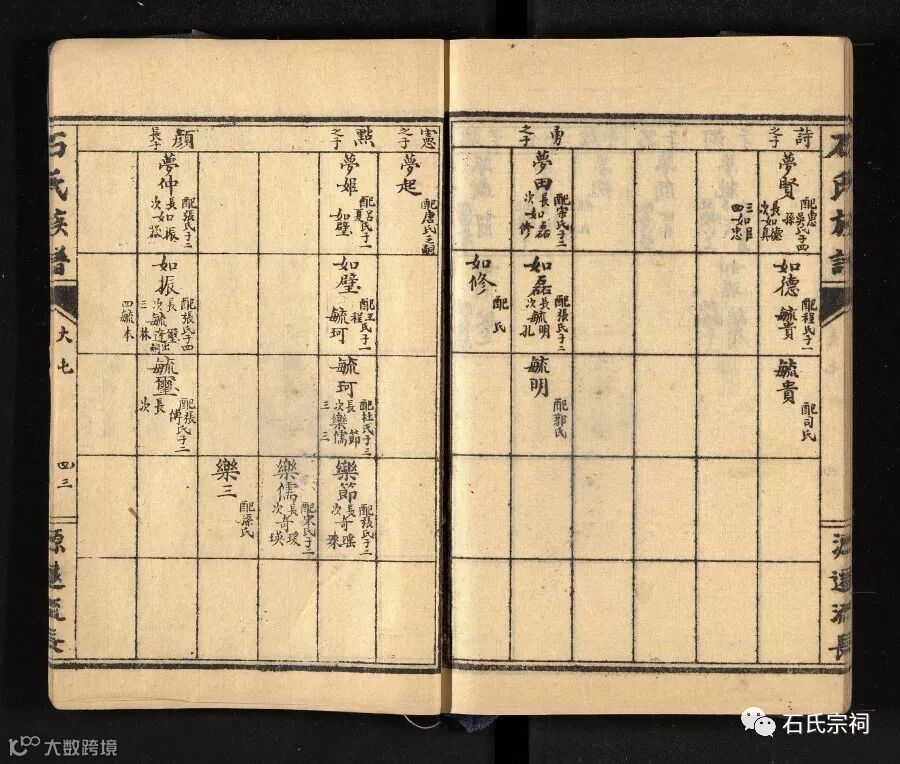 詩之子
夢賢
配惠 孫 吳氏子四
長如德
次如真
三如臣
四如忠
如德
配程氏子一
毓貴
毓貴
配司氏
勇之子
夢田
配宋氏子二
長如磊
次如修
如磊
配張氏子二
長毓明
次 孔
毓明
配郭氏
如修
配 氏
憲之子
夢起
配唐氏乏嗣
點之子
夢姬
配呂 夏氏子一
如璧
如璧
配王 程氏子一
毓珂
毓珂
配杜氏子三
長 節
次樂儒
三 三
樂節
配張氏子二
長奇瑤
次 琛
樂儒
配宋氏子二
長奇瑗
次 瑛
樂三
配梁氏
顏長子
夢仲
配張氏子二
長如振
次如
如振
配張氏子四
長 璽
次毓蓬出嗣
三 林
四毓本
毓璽
配張氏子二
長
次 傅
石氏族譜
大七
四三
源遠流長
石氏族譜
源遠流長
石氏宗祠
大数跨境